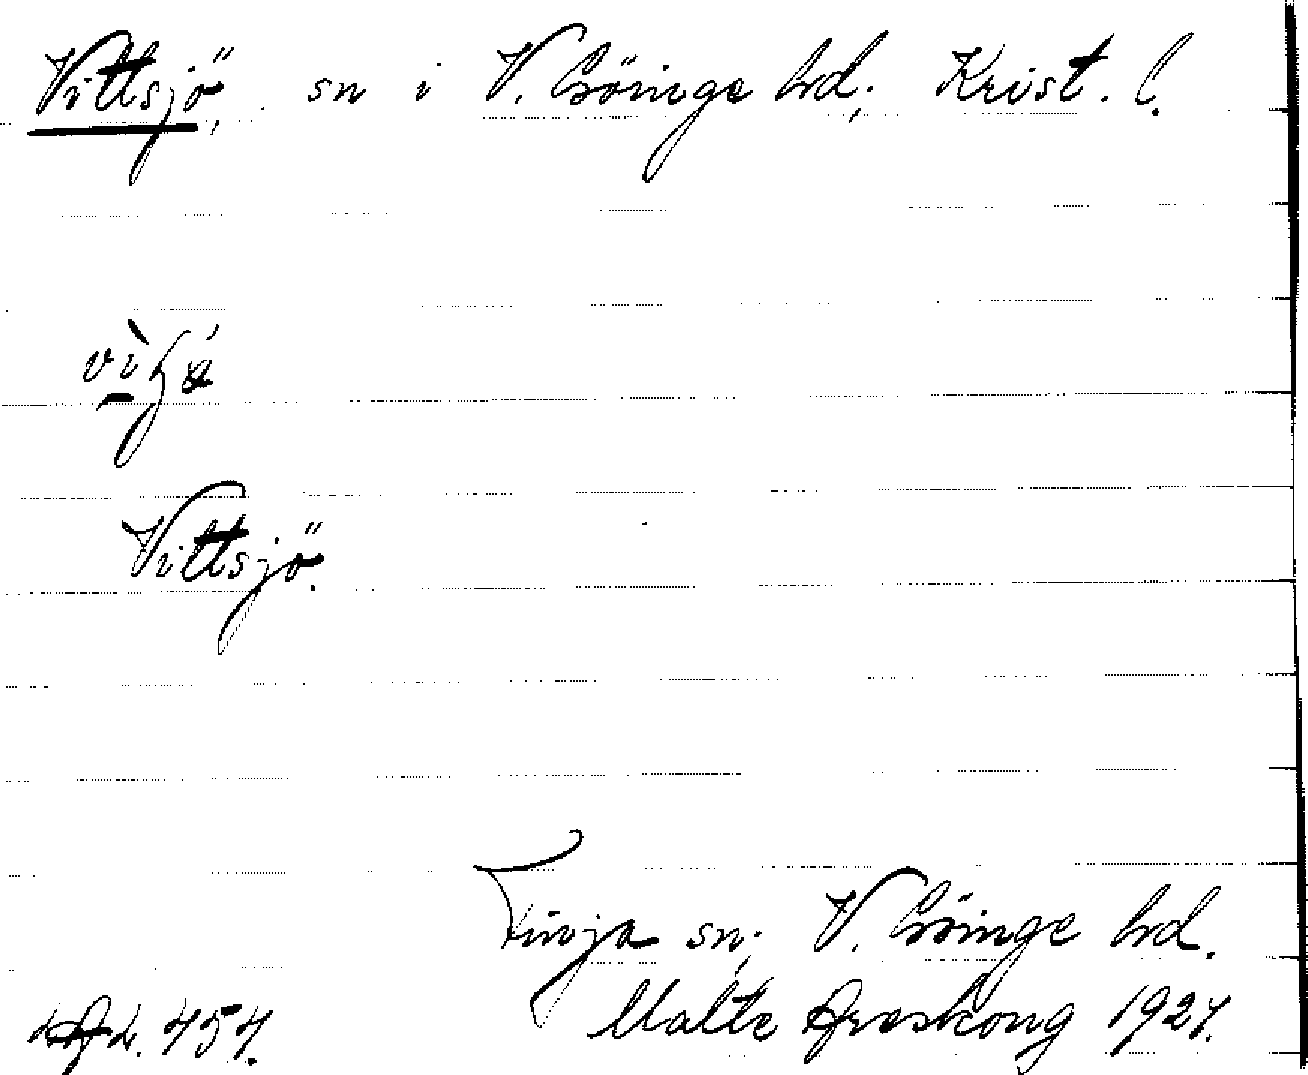 Vittsjö, sn i V. Göinge hd; Krist. l.
Vittsjö.
Finja sn; V. Göinge hd.
Malte Areskoug 1927.